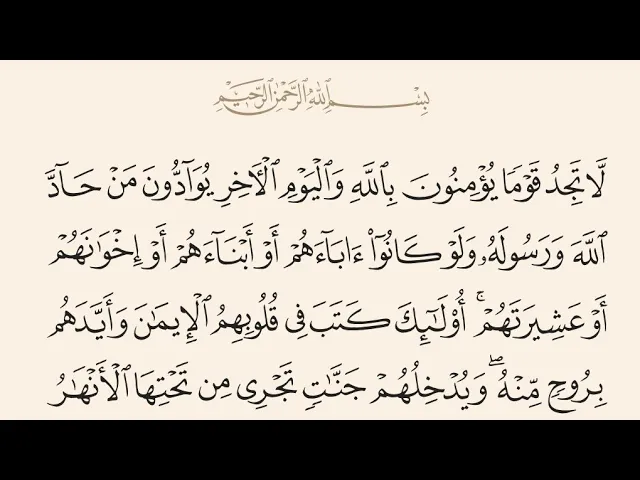 بِسْمِ ٱللَّهِ ٱلرَّحْمَٰنِ ٱلرَّحِيمِ
لَّا تَجِدُ قَوْمًا يُؤْمِنُونَ بِٱللَّهِ وَٱلْيَوْمِ ٱلْأَخِرِ يُوَآدُّونَ مَنْ حَآدَّ
ٱللَّهَ وَرَسُولَهُۥ وَلَوْ كَانُوٓا۟ ءَابَآءَهُمْ أَوْ أَبْنَآءَهُمْ أَوْ إِخْوَٰنَهُمْ
أَوْ عَشِيرَتَهُمْ ۚ أُو۟لَٰٓئِكَ كَتَبَ فِى قُلُوبِهِمُ ٱلْإِيمَٰنَ وَأَيَّدَهُم
بِرُوحٍ مِّنْهُ ۖ وَيُدْخِلُهُمْ جَنَّٰتٍ تَجْرِى مِن تَحْتِهَا ٱلْأَنْهَٰرُ